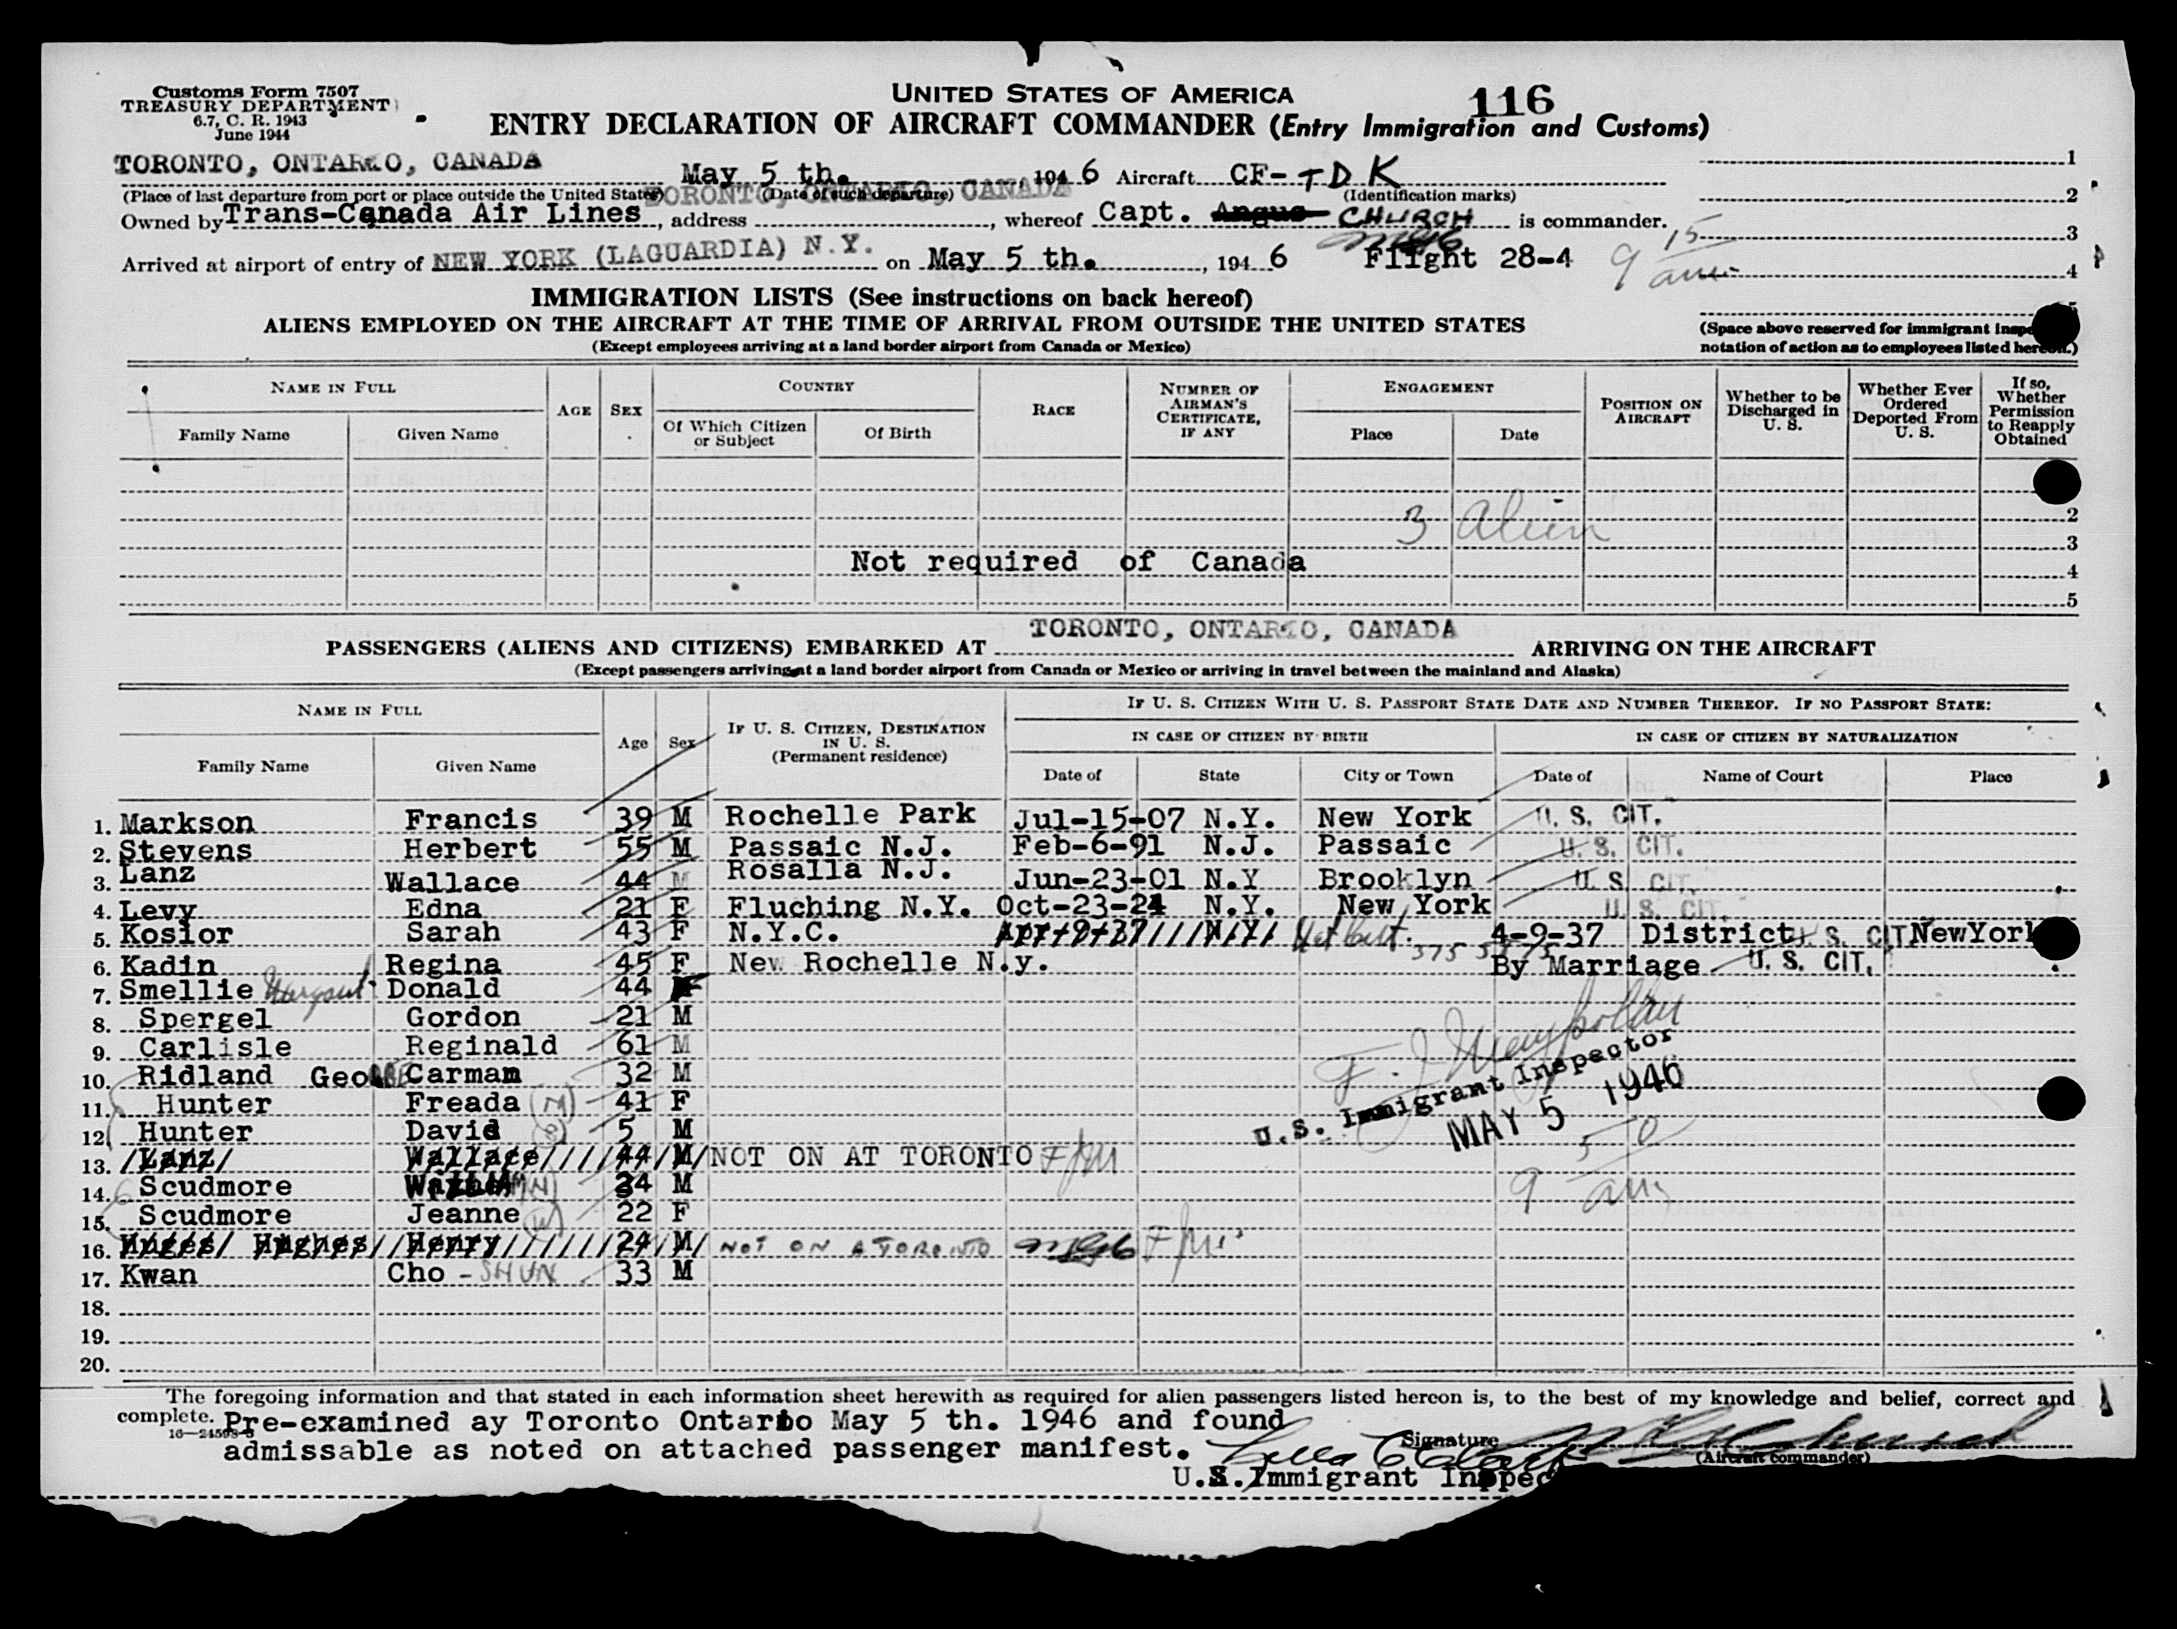 Customs Form 7507
TREASURY DEPARTMENT
6.7, C. R. 1943
June 1944
UNITED STATES OF AMERICA
116
ENTRY DECLARATION OF AIRCRAFT COMMANDER (Entry Immigration and Customs)
TORONTO, ONTARIO, CANADA May 5 th. , 194 6 Aircraft CF-TDK 1
(Place of last departure from port or place outside the United States) (Date of such departure) (Identification marks) 2
TORONTO, ONTARIO, CANADA
Owned by Trans-Canada Air Lines, address , whereof Capt. Angus CHURCH is commander. 3
Arrived at airport of entry of NEW YORK (LAGUARDIA) N.Y. on May 5 th. , 194 6 Flight 28-4 9 15 am 4
IMMIGRATION LISTS (See instructions on back hereof) 5
ALIENS EMPLOYED ON THE AIRCRAFT AT THE TIME OF ARRIVAL FROM OUTSIDE THE UNITED STATES
(Except employees arriving at a land border airport from Canada or Mexico)
(Space above reserved for immigrant
notation of action as to employees listed hereon.)
NAME IN FULL AGE SEX COUNTRY RACE NUMBER OF AIRMAN'S CERTIFICATE, IF ANY ENGAGEMENT POSITION ON AIRCRAFT Whether to be Discharged in U. S. Whether Ever Ordered Deported From U. S. If so, Whether Permission to Reapply Obtained
Family Name Given Name Of Which Citizen or Subject Of Birth Place Date
3 Alien 2
3
Not required of Canada 4
5
PASSENGERS (ALIENS AND CITIZENS) EMBARKED AT TORONTO, ONTARIO, CANADA ARRIVING ON THE AIRCRAFT
(Except passengers arriving at a land border airport from Canada or Mexico or arriving in travel between the mainland and Alaska)
NAME IN FULL Age Sex IF U. S. CITIZEN, DESTINATION IN U. S. (Permanent residence) IF U. S. CITIZEN WITH U. S. PASSPORT STATE DATE AND NUMBER THEREOF. IF NO PASSPORT STATE:
IN CASE OF CITIZEN BY BIRTH IN CASE OF CITIZEN BY NATURALIZATION
Family Name Given Name Date of State City or Town Date of Name of Court Place
1. Markson Francis 39 M Rochelle Park Jul-15-07 N.Y. New York U. S. CIT.
2. Stevens Herbert 55 M Passaic N.J. Feb-6-91 N.J. Passaic U. S. CIT.
3. Lanz Wallace 44 M Rosalla N.J. Jun-23-01 N.Y Brooklyn U. S. CIT.
4. Levy Edna 21 F Fluching N.Y. Oct-23-24 N.Y. New York U. S. CIT.
5. Kosior Sarah 43 F N.Y.C. Apr-9-37 N.Y. 4-9-37 District U. S. CIT. NewYork
6. Kadin Regina 45 F New Rochelle N.y. By Marriage U. S. CIT.
7. Smellie Margaret Donald 44 F
8. Spergel Gordon 21 M
9. Carlisle Reginald 61 M
10. Ridland George Carman 32 M
11. Hunter Freada (M) 41 F
12. Hunter David 5 M
13. Lanz Wallace 44 M NOT ON AT TORONTO FJM
14. Scudmore 24 M
15. Scudmore Jeanne (W) 22 F
16. Huges Hughes Henry 24 M NOT ON A TORONTO FJM
17. Kwan Cho-SHUN 33 M
18.
19.
20.
U.S. Immigrant Inspector
MAY 5 1946
9 50 am
The foregoing information and that stated in each information sheet herewith as required for alien passengers listed hereon is, to the best of my knowledge and belief, correct and
complete. Pre-examined ay Toronto Ontario May 5 th. 1946 and found
admissable as noted on attached passenger manifest. Signature
(Aircraft commander)
U.S. Immigrant Inspec